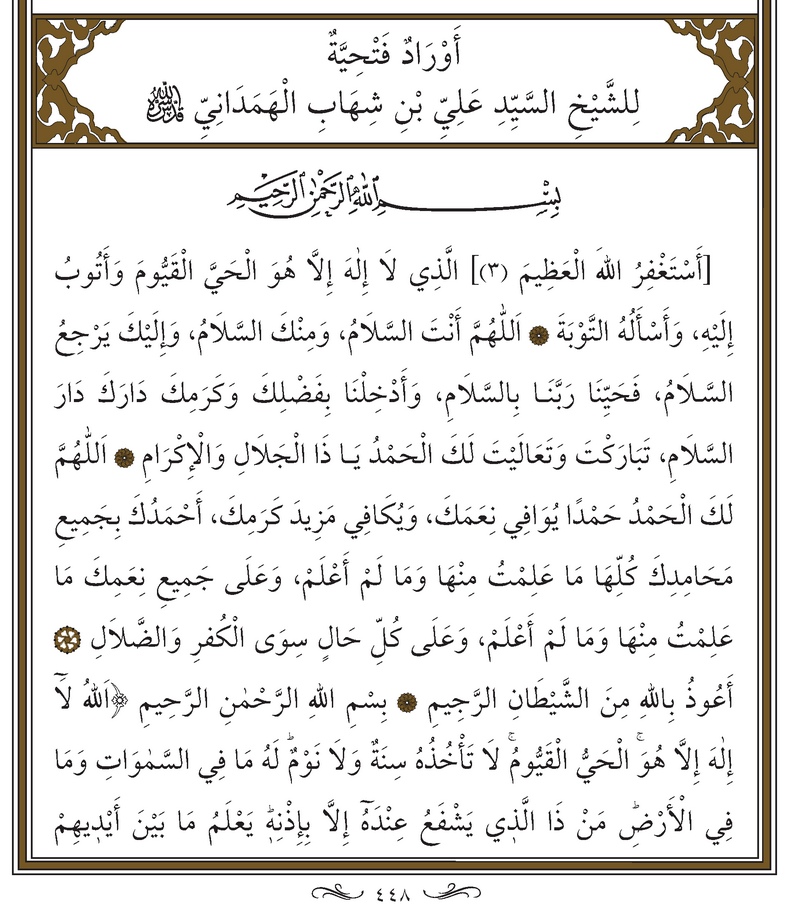 أَوْرَادٌ فَتْحِيَّةٌ
لِلشَّيْخِ السَّيِّدِ عَلِيِّ بْنِ شِهَابِ الْهَمَدَانِيِّ
بِسْمِ اللهِ الرَّحْمٰنِ الرَّحِيمِ
[أَسْتَغْفِرُ اللهَ الْعَظِيمَ (٣)] الَّذِي لَا إِلٰهَ إِلَّا هُوَ الْحَيَّ الْقَيُّومَ وَأَتُوبُ
إِلَيْهِ، وَأَسْأَلُهُ التَّوْبَةَ ۞ اَللّٰهُمَّ أَنْتَ السَّلَامُ، وَمِنْكَ السَّلَامُ، وَإِلَيْكَ يَرْجِعُ
السَّلَامُ، فَحَيِّنَا رَبَّنَا بِالسَّلَامِ، وَأَدْخِلْنَا بِفَضْلِكَ وَكَرَمِكَ دَارَكَ دَارَ
السَّلَامِ، تَبَارَكْتَ وَتَعَالَيْتَ لَكَ الْحَمْدُ يَا ذَا الْجَلَالِ وَالْإِكْرَامِ ۞ اَللّٰهُمَّ
لَكَ الْحَمْدُ حَمْدًا يُوَافِي نِعَمَكَ، وَيُكَافِي مَزِيدَ كَرَمِكَ، أَحْمَدُكَ بِجَمِيعِ
مَحَامِدِكَ كُلِّهَا مَا عَلِمْتُ مِنْهَا وَمَا لَمْ أَعْلَمْ، وَعَلَى جَمِيعِ نِعَمِكَ مَا
عَلِمْتُ مِنْهَا وَمَا لَمْ أَعْلَمْ، وَعَلَى كُلِّ حَالٍ سِوَى الْكُفرِ وَالضَّلَالِ ۞
أَعُوذُ بِاللهِ مِنَ الشَّيْطَانِ الرَّجِيمِ ۞ بِسْمِ اللهِ الرَّحْمٰنِ الرَّحِيمِ ﴿اَللهُ لَآ
إِلٰهَ إِلَّا هُوَۚ الْحَيُّ الْقَيُّومُۚ لَا تَأْخُذُهُ سِنَةٌ وَلَا نَوْمٌۜ لَهُ مَا فِي السَّمٰوَاتِ وَمَا
فِي الْأَرْضِۜ مَنْ ذَا الَّذِي يَشْفَعُ عِنْدَهُٓ إِلَّا بِإِذْنِهِۜ يَعْلَمُ مَا بَيْنَ أَيْدِيهِمْ
٤٤٨